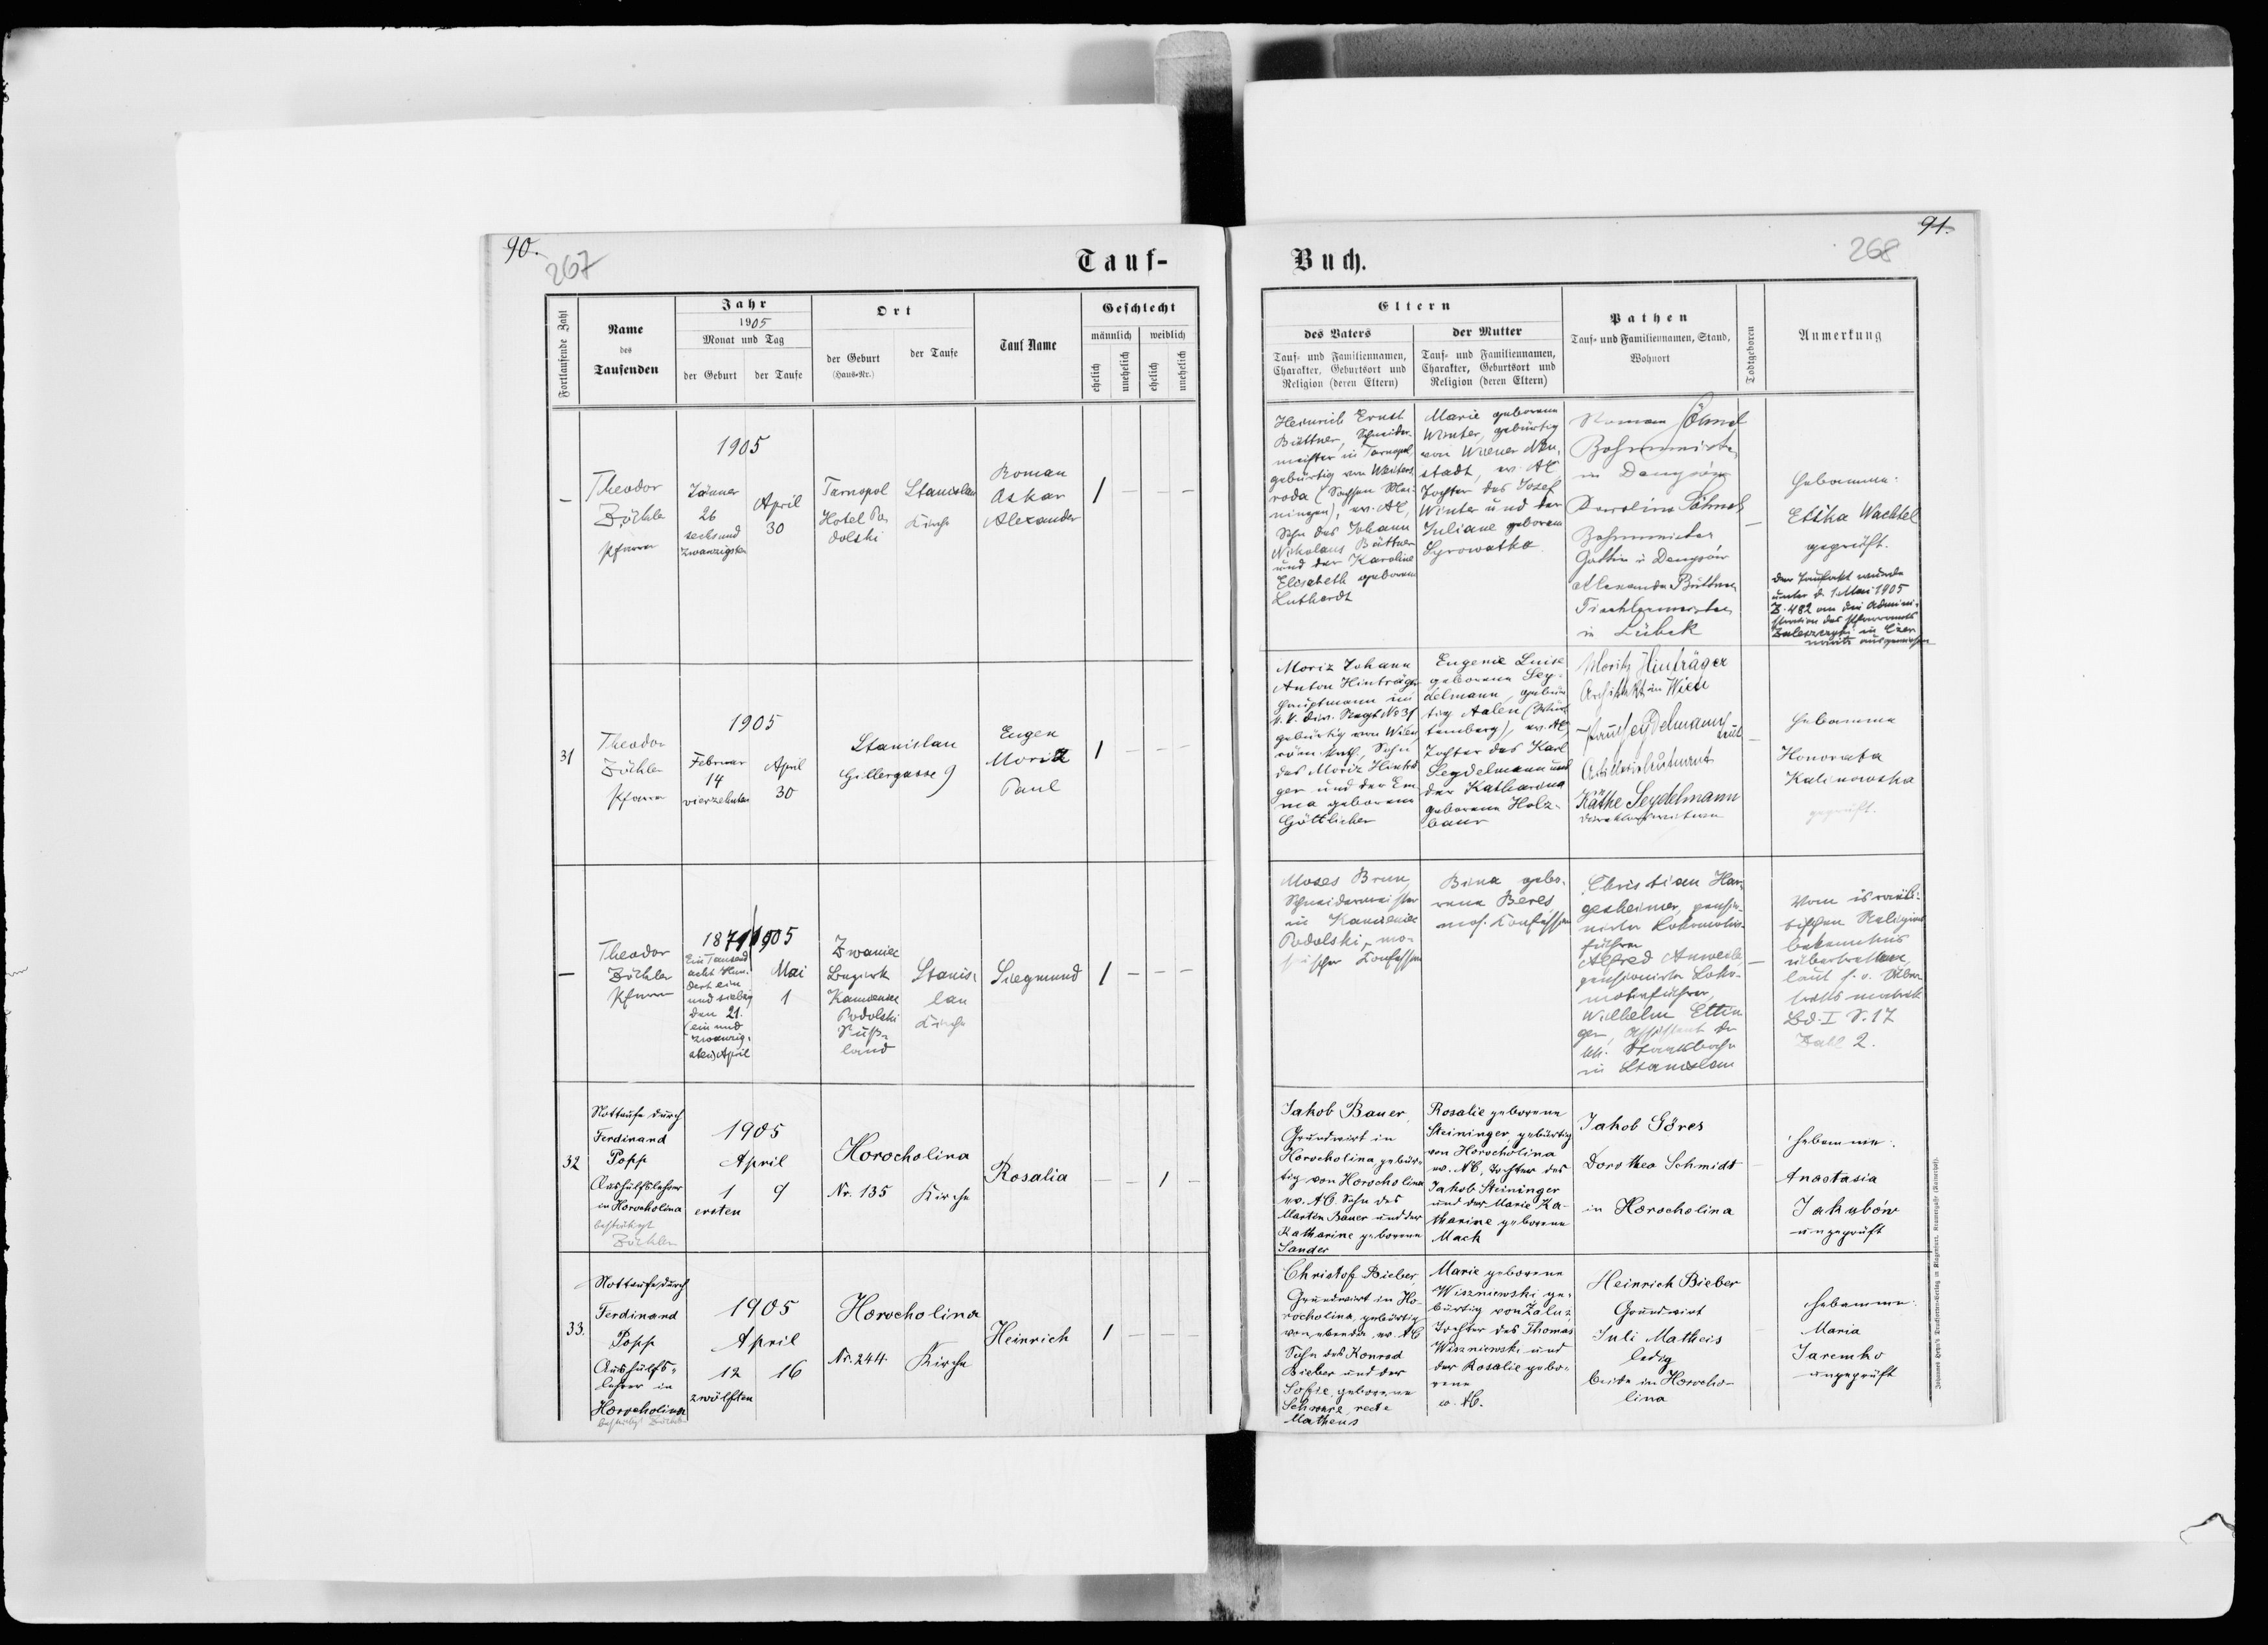 90.
267
Tauf-
Fortlaufende Zahl
Name
des
Taufenden
Jahr
1905
Monat und Tag
der Geburt
der Taufe
Ort
der Geburt
(Haus-Nr.)
der Taufe
Tauf Name
Geschlecht
männlich
weiblich
ehelich
unehelich
ehelich
unehelich
—
Theodor
Zöckler
Pfarrer
1905
Jänner
26
sechsund
zwanzigsten
April
30
Tarnopol
Hotel Po
dolski
Stanislau
Kirche
Roman
Oskar
Alexander
1 — — —
31
Theodor
Zöckler
Pfarrer
1905
Februar
14
vierzehnten
April
30
Stanislau
Gillergasse 9
Eugen
Moritz
Paul
1 — — —
—
Theodor
Zöckler
Pfarrer
1871 1905
Ein Tausend
acht Hun-
dert ein
und siebzig
den 21.
(ein und
zwanzig-
sten) April
Mai
1
Zwaniec
Bezirk
Kamieniec
Podolski
Ruß-
land
Stanis-
lau
Kirche
Siegmund
1 — — —
32
Nottaufe durch
Ferdinand
Popp
Aushülfslehrer
in Horocholina
bestätigt
Zöckler
1905
April
1 9
ersten
Horocholina
Nr. 135 Kirche
Rosalia
— — 1 —
33.
Nottaufe durch
Ferdinand
Popp
Aushülfs-
lehrer in
Horocholina
bestätigt Zöckler
1905
April
12 16
zwölften
Horocholina
Nr. 244. Kirche
Heinrich
1 — — —
91.
268
Buch.
Eltern
des Vaters
Tauf- und Familiennamen,
Charakter, Geburtsort und
Religion (deren Eltern)
der Mutter
Tauf- und Familiennamen,
Charakter, Geburtsort und
Religion (deren Eltern)
Pathen
Tauf- und Familiennamen, Stand,
Wohnort
Todtgeboren
Anmerkung
Heinrich Ernst
Büttner, Schneider-
meister in Tarnopol,
gebürtig von
roda (Sachsen Mei-
ningen), ev. AC,
Sohn des Johann
Nikolaus Büttner
und der Karoline
Elisabeth geborene
Luthardt
Marie geborene
Winter, gebürtig
von Wiener Neu-
stadt, ev. AC
Tochter des Josef
Winter und der
Juliane geborene
Syrowatka
Roman
Bahnmeister
in
Karoline
Bahnmeister
Gattin in
Alexander Büttner
in Lübek
—
Hebamme:
Ettka Wachtel
geprüft.
Der Taufakt wurde
unter d. 1. Mai 1905
Z. 482 an die Admini-
stration des Pfarramts
Zaleszczyki in Czer
nowitz
Moriz Johann
Anton Hinträger
Hauptmann im
gebürtig von Wien,
röm. kath., Sohn
des Moriz Hinträ
ger und der Em-
ma geborene
Göttlicher
Eugenie Luise
geborene Sey-
delmann, gebür
tig Aalen (Würt
temberg), ev. AC,
Tochter des Karl
Seydelmann und
der Katharina
geborene Holz-
baur
Moritz Hinträger
Architekt in Wien
Paul Seydelmann
Käthe Seydelmann
—
Hebamme
Honorata
Kalinowska
geprüft.
Moses Brun
Schneidermeister
in Kamieniec
Podolski, mo-
saischer Konfession
Bina gebo-
rene Beres
mos. Konfession
Christian Han-
gesheimer, pensio-
nierter Lokomotiv-
führer
Alfred
pensionierter Loko-
motivführer,
Wilhelm Ettin
ger, Assistent der
kk. Staatsbahn
in Stanislau
—
Vom israeli-
tischen Religions
bekenntnis
übertreten,
laut h. o. Über
tritts matrik
Bd. I S. 17
Zahl 2.
Jakob Bauer,
Grundwirt in
Horocholina, gebür-
tig von Horocholina
ev. AC. Sohn des
Martin Bauer und der
Katharine geborene
Sander
Rosalie geborene
Steininger, gebürtig
von Horocholina
ev. AC, Tochter des
Jakob Steininger
und der Marie Ka-
tharine geborene
Mack
Jakob Göres
Dorothea Schmidt
in Horocholina
—
Hebamme:
Anastasia
Jakubów
ungeprüft
Christof Bieber,
Grundwirt in Ho-
rocholina, gebürtig
von ebenda, ev. AC
Sohn des Konrad
Bieber und der
Sofie, geborene
Schwarz, recte
Matheus
Marie geborene
Wiszniewski ge-
bürtig von Zaluz
Tochter des Thomas
Wiszniewski und
der Rosalie gebo-
rene
ev. AC.
Heinrich Bieber
Grundwirt
Juli Matheis
ledig
beide in Horocho-
lina
—
Hebamme:
Maria
Jaremko
ungeprüft
Johannes Heyn's Drucksorten-Verlag in Klagenfurt, Kramergasse (Kaiserhof).